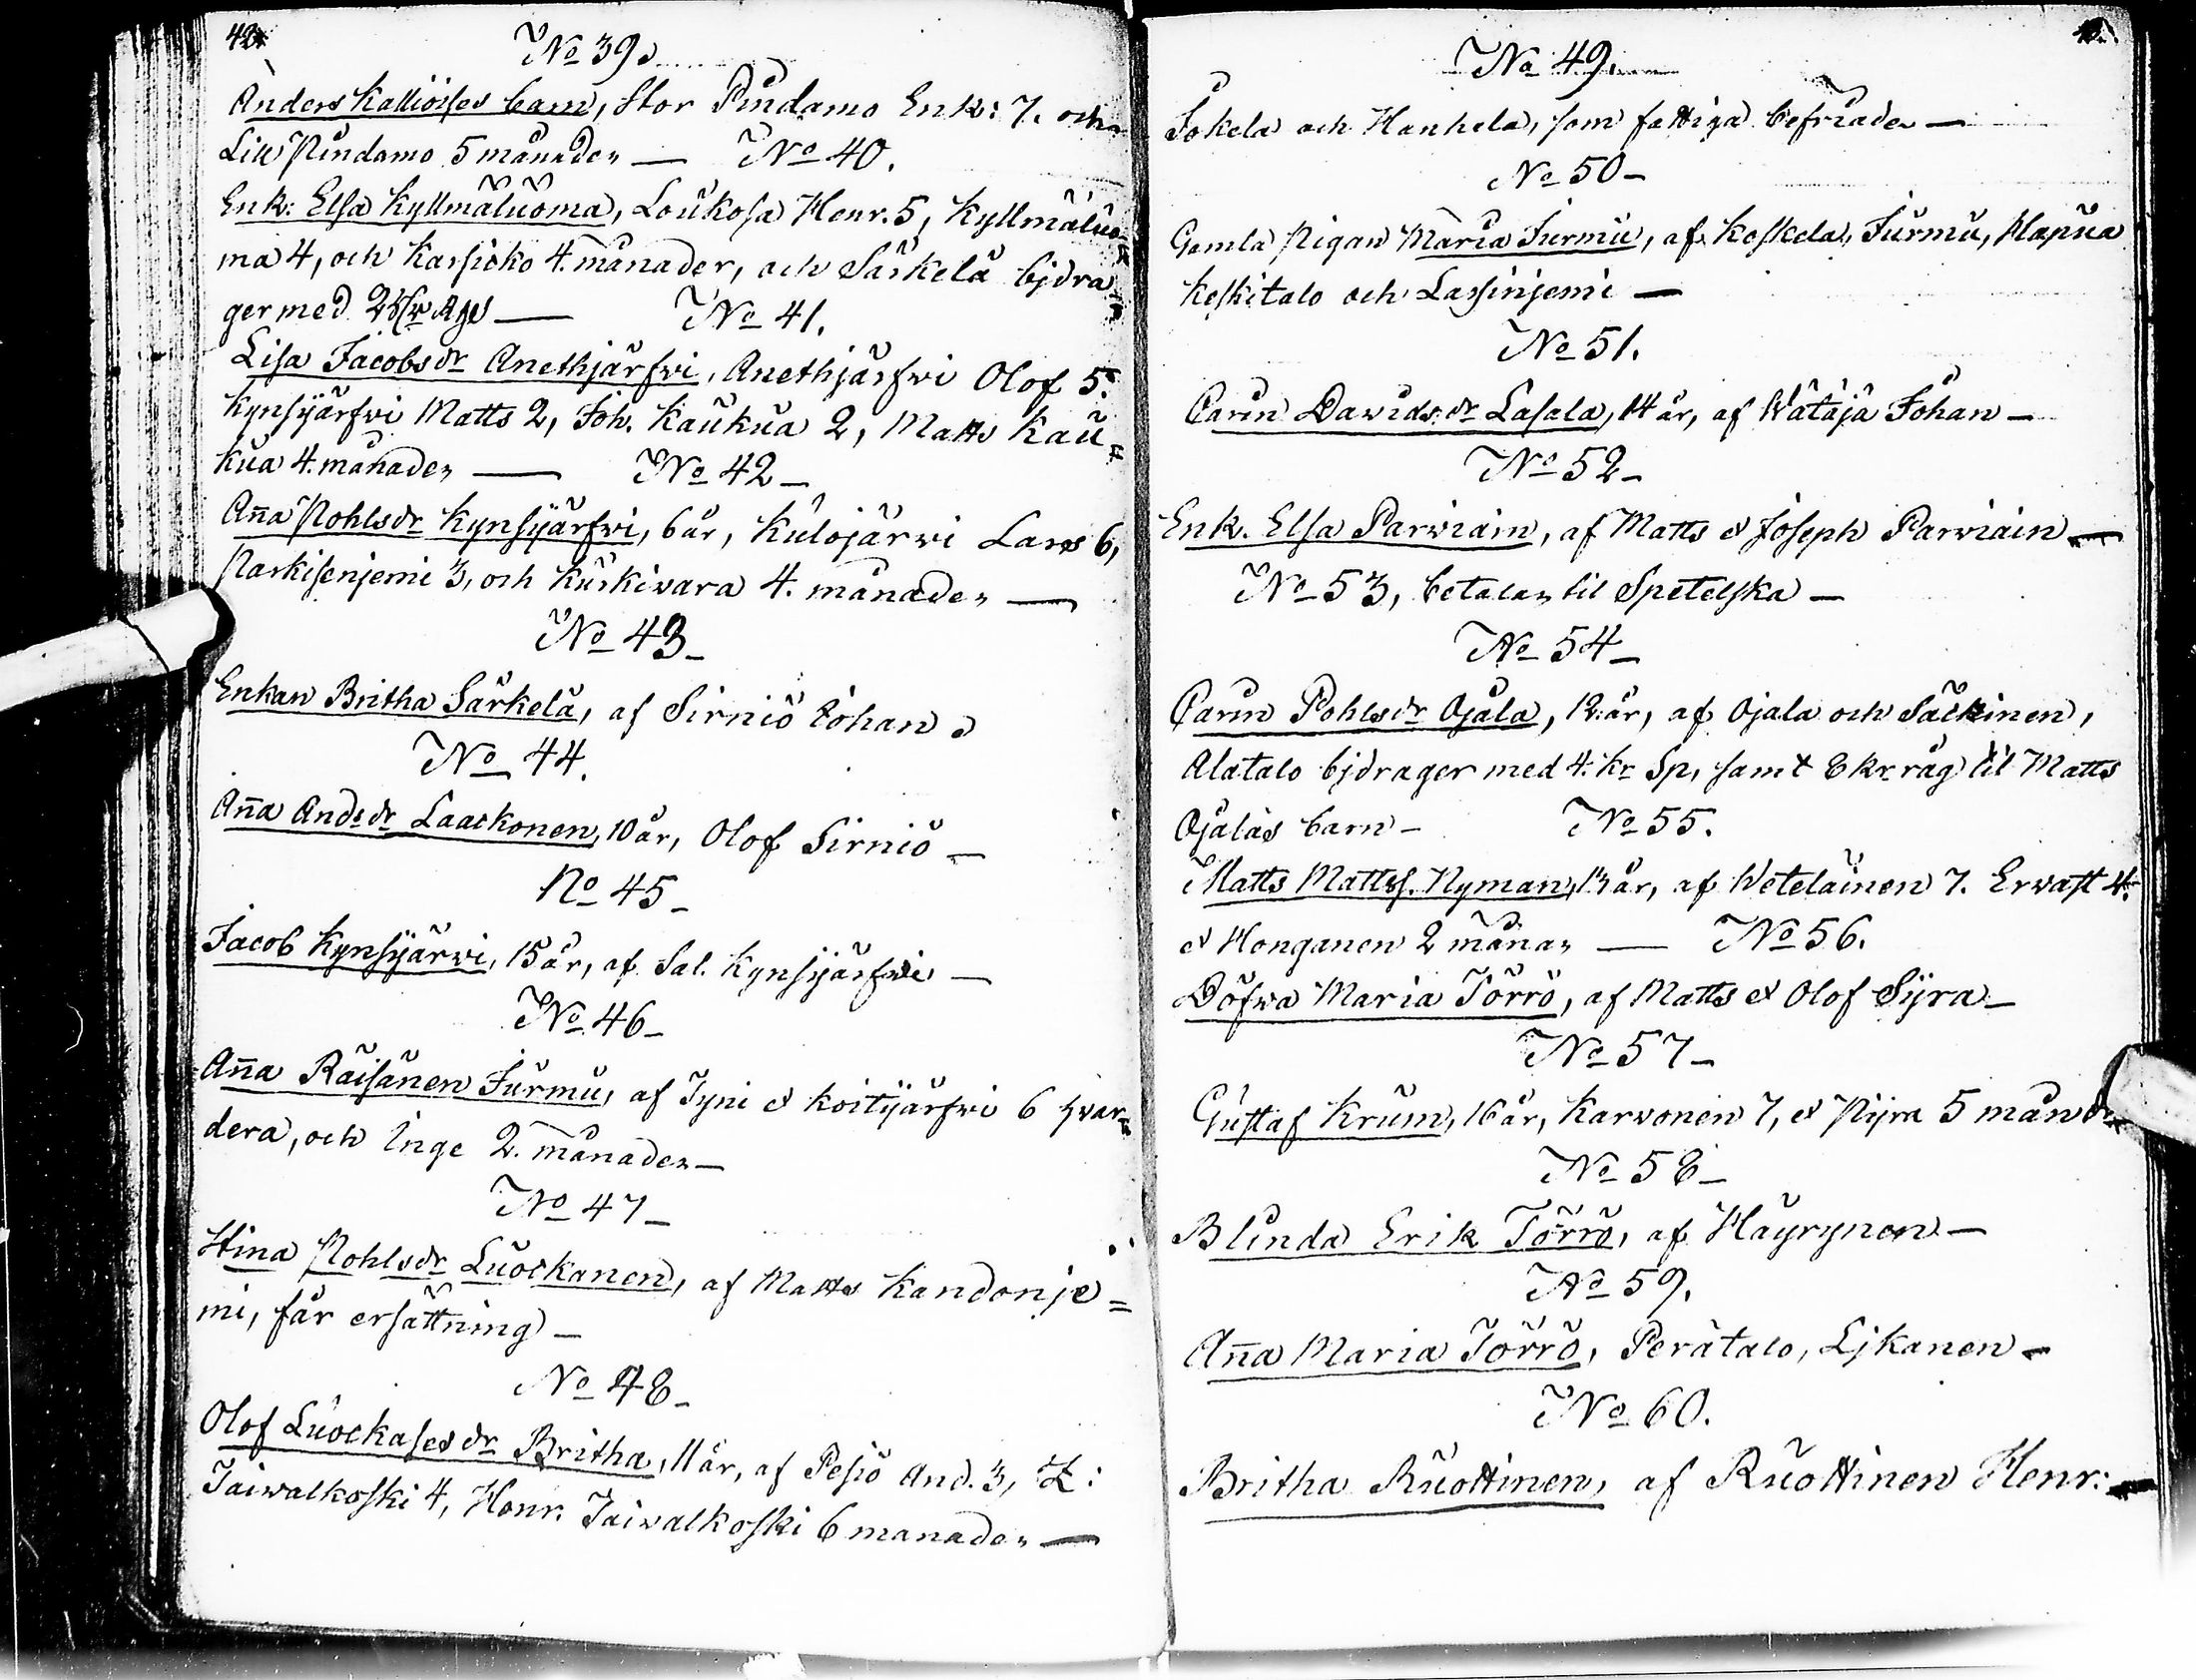 42
No 39.
Anders Kalliöises barn, Stor Pindamo Enk: 7. och
Lill Pindamo 5 månader — No 40.
Enk: Elsa Kyllmäluoma, Loukosa Henr. 5, Kyllmäluo-
ma 4, och Karsicko 4. månader, och Särkelä bjdra-
ger med — No 41.
Lisa Jacobsdr Anethjärfwi, Anethjärfwi Olof 5.
Kynsijärfwi Matts 2, Joh. Kaukua 2, Matts Kau-
kua 4. månader — No 42 –
Aña Pohlsdr Kynsijärfwi, 6 år, Kulojärwi Lars 6,
Parkisenjemi 3, och Kurkiwara 4. månader —
No 43 –
Enkan Britha Särkelä, af Sirniö Eohan.
No 44.
Aña Andsdr Laackonen, 10 år, Olof Sirniö —
No 45 –
Jacob Kynsijärwi, 15 år, af Sal. Kynsijärfwi —
No 46 –
Aña Räisänen Jurmu, af Tyni et Koitijärfwi 6 hvar-
dera, och Inge 2. månader —
No 47 –
Stina Pohlsdr Luockanen, af Matts Kandonje=
mi, får ersättning —
No 48 –
Olof Luockases dr Britha, 11 år, af Pesiö And. 3, Z:
Taiwalkoski 4, Henr. Taiwalkoski 6 manader —
No 49.
Jokela och Hanhela, som fattiga befriade —
No 50 –
Gamla Pigan Maria Jurmu, af Koskela, Jurmu, Hapua
Keskitalo och Lassinjemi —
No 51.
Carin Dawids dr Lasala, 14 år, af Wätäjä Johan —
No 52 –
Enk. Elsa Parwiain, af Matts et Joseph Parwiain —
No 53, betalar til Spetelska —
No 54 –
Carin Pohlsdr Ojala, 12 år, af Ojala och Säckinen,
Alatalo bjdrager med 4. kr Sp, samt 8 kr råg til Matts
Ojalas barn – No 55.
Matts Mattss. Nyman, 13 år, af Weteläinen 7. Erwast 4.
et Honganen 2 månar — No 56.
Döfwa Maria Törrö, af Matts et Olof Sijra —
No 57 –
Gustaf Krum, 16 år, Karwonen 7, et Pijra 5 månd
No 58 –
Blinda Erik Törrö, af Häyrynen —
No 59.
Aña Maria Törrö, Perätalo, Ljkanen –
No 60.
Britha Ruottinen, af Ruottinen Henr: —